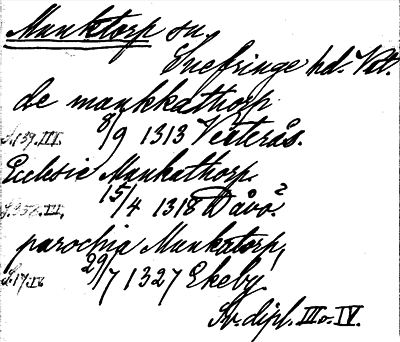 Munktorp sn,
Snefringe hd. Vst.
de munkkathorp
S.139.III. 8/9 1313 Vesterås.
Ecclesie Munkathorp
S.352.III. 15/4 1318 Dåvö?
parochia Munkatorp,
S.17.IV 29/7 1327 Ekeby.
Sv. dipl. III o. IV.